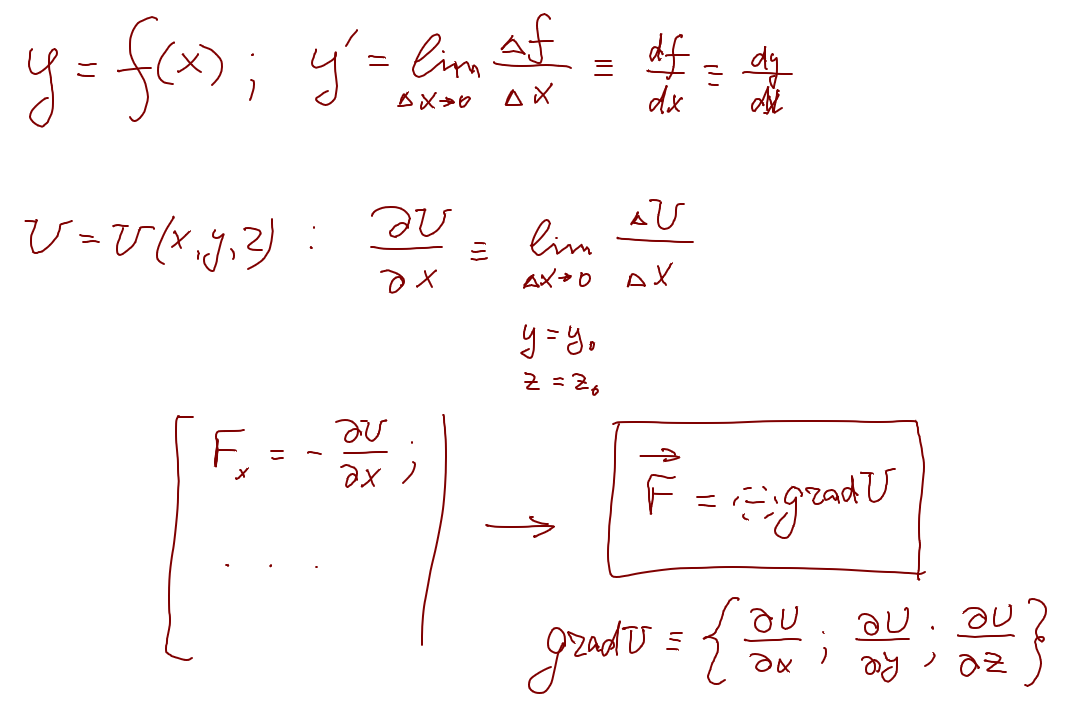 y = f(x) ; y′ = lim Δf/Δx ≡ df/dx ≡ dy/dx
Δx→0
U = U(x,y,z) : ∂U/∂x ≡ lim ΔU/Δx
Δx→0
y = y₀
z = z₀
[ Fₓ = - ∂U/∂x ; | → F⃗ = - grad U
. . .
grad U ≡ { ∂U/∂x ; ∂U/∂y ; ∂U/∂z }